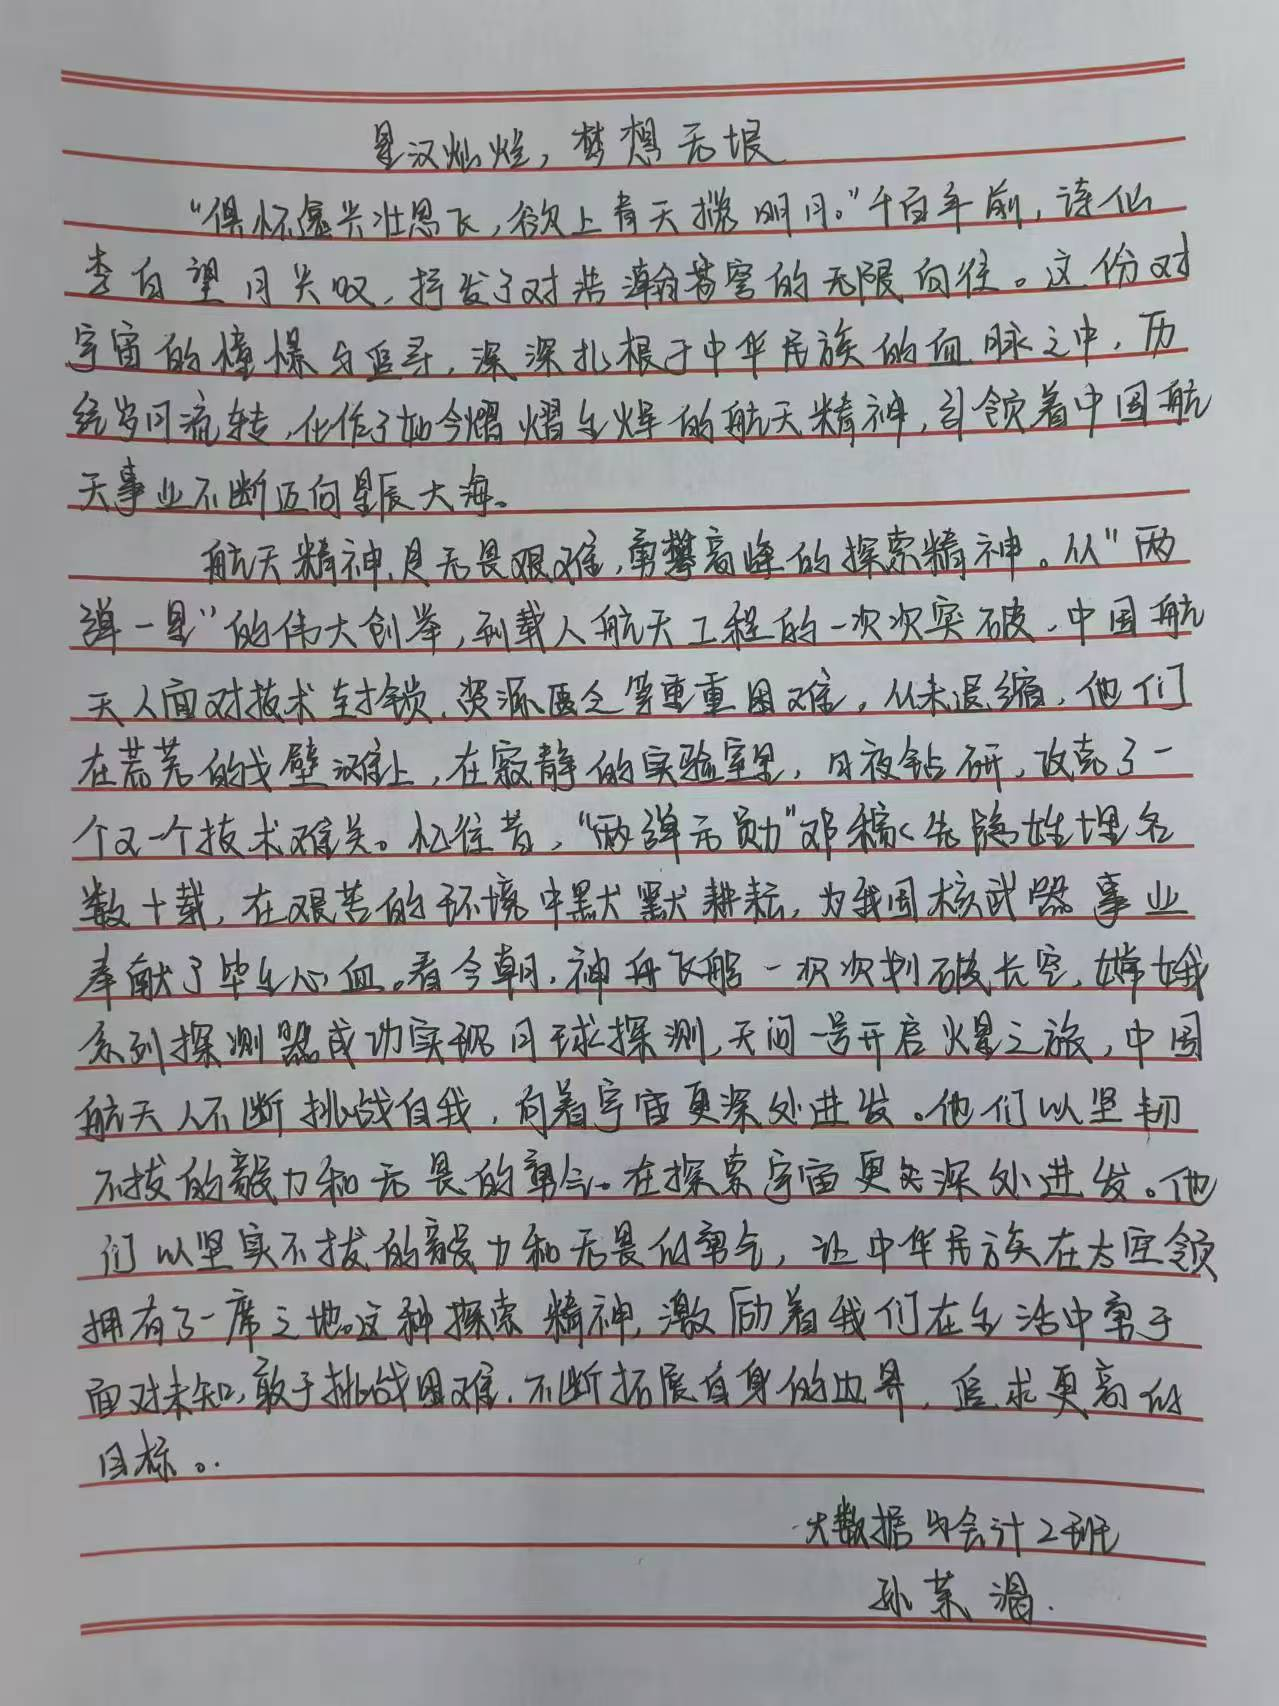 星汉灿烂，梦想无垠
“俱怀逸兴壮思飞，欲上青天揽明月。”千百年前，诗仙
李白望月兴叹，抒发了对浩瀚苍穹的无限向往。这份对
宇宙的憧憬与追寻，深深扎根于中华民族的血脉之中，历
经岁月流转，化作了如今熠熠生辉的航天精神，引领着中国航
天事业不断迈向星辰大海。
航天精神，是无畏艰难，勇攀高峰的探索精神。从“两
弹一星”的伟大创举，到载人航天工程的一次次突破，中国航
天人面对技术封锁，资源匮乏等重重困难，从未退缩，他们
在荒芜的戈壁滩上，在寂静的实验室里，日夜钻研，攻克了一
个又一个技术难关。忆往昔，“两弹元勋”邓稼先隐姓埋名
数十载，在艰苦的环境中默默耕耘，为我国核武器事业
奉献了毕生心血。看今朝，神舟飞船一次次划破长空，嫦娥
系列探测器成功实现月球探测，天问一号开启火星之旅，中国
航天人不断挑战自我，向着宇宙更深处进发。他们以坚韧
不拔的毅力和无畏的勇气。在探索宇宙更深处进发。他
们以坚实不拔的毅力和无畏的勇气，让中华民族在太空领
拥有了一席之地。这种探索精神，激励着我们在生活中勇于
面对未知，敢于挑战困难，不断拓展自身的边界，追求更高的
目标。
大数据与会计2班
孙